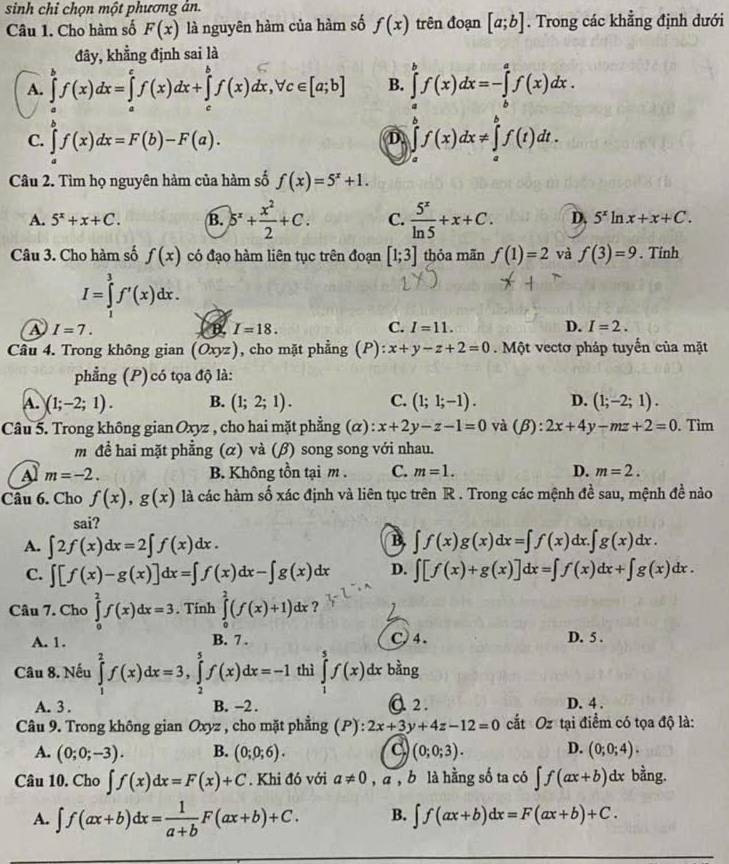 sinh chỉ chọn một phương án.
Câu 1. Cho hàm số F(x) là nguyên hàm của hàm số f(x) trên đoạn [a;b]. Trong các khẳng định dưới
đây, khẳng định sai là
A. ∫_a^b f(x)dx = ∫_a^c f(x)dx + ∫_c^b f(x)dx, ∀c ∈ [a;b] B. ∫_a^b f(x)dx = -∫_b^a f(x)dx.
C. ∫_a^b f(x)dx = F(b) - F(a). D. ∫_a^b f(x)dx ≠ ∫_a^b f(t)dt.
Câu 2. Tìm họ nguyên hàm của hàm số f(x) = 5^x + 1.
A. 5^x + x + C. B. 5^x + x²/2 + C. C. 5^x/ln 5 + x + C. D. 5^x ln x + x + C.
Câu 3. Cho hàm số f(x) có đạo hàm liên tục trên đoạn [1;3] thỏa mãn f(1) = 2 và f(3) = 9. Tính
I = ∫_1^3 f'(x)dx.
A. I = 7. B. I = 18. C. I = 11. D. I = 2.
Câu 4. Trong không gian (Oxyz), cho mặt phẳng (P): x + y - z + 2 = 0. Một vectơ pháp tuyến của mặt
phẳng (P) có tọa độ là:
A. (1;-2; 1). B. (1; 2; 1). C. (1; 1;-1). D. (1;-2; 1).
Câu 5. Trong không gian Oxyz, cho hai mặt phẳng (α): x + 2y - z - 1 = 0 và (β): 2x + 4y - mz + 2 = 0. Tìm
m để hai mặt phẳng (α) và (β) song song với nhau.
A. m = -2. B. Không tồn tại m. C. m = 1. D. m = 2.
Câu 6. Cho f(x), g(x) là các hàm số xác định và liên tục trên ℝ. Trong các mệnh đề sau, mệnh đề nào
sai?
A. ∫2f(x)dx = 2∫f(x)dx. B. ∫f(x)g(x)dx = ∫f(x)dx.∫g(x)dx.
C. ∫[f(x) - g(x)]dx = ∫f(x)dx - ∫g(x)dx D. ∫[f(x) + g(x)]dx = ∫f(x)dx + ∫g(x)dx.
Câu 7. Cho ∫_0^2 f(x)dx = 3. Tính ∫_0^2 (f(x) + 1)dx ?
A. 1. B. 7. C. 4. D. 5.
Câu 8. Nếu ∫_1^2 f(x)dx = 3, ∫_2^5 f(x)dx = -1 thì ∫_1^5 f(x)dx bằng
A. 3. B. -2. C. 2. D. 4.
Câu 9. Trong không gian Oxyz, cho mặt phẳng (P): 2x + 3y + 4z - 12 = 0 cắt Oz tại điểm có tọa độ là:
A. (0;0;-3). B. (0;0;6). C. (0;0;3). D. (0;0;4).
Câu 10. Cho ∫f(x)dx = F(x) + C. Khi đó với a ≠ 0, a, b là hằng số ta có ∫f(ax + b)dx bằng.
A. ∫f(ax + b)dx = 1/(a + b) F(ax + b) + C. B. ∫f(ax + b)dx = F(ax + b) + C.